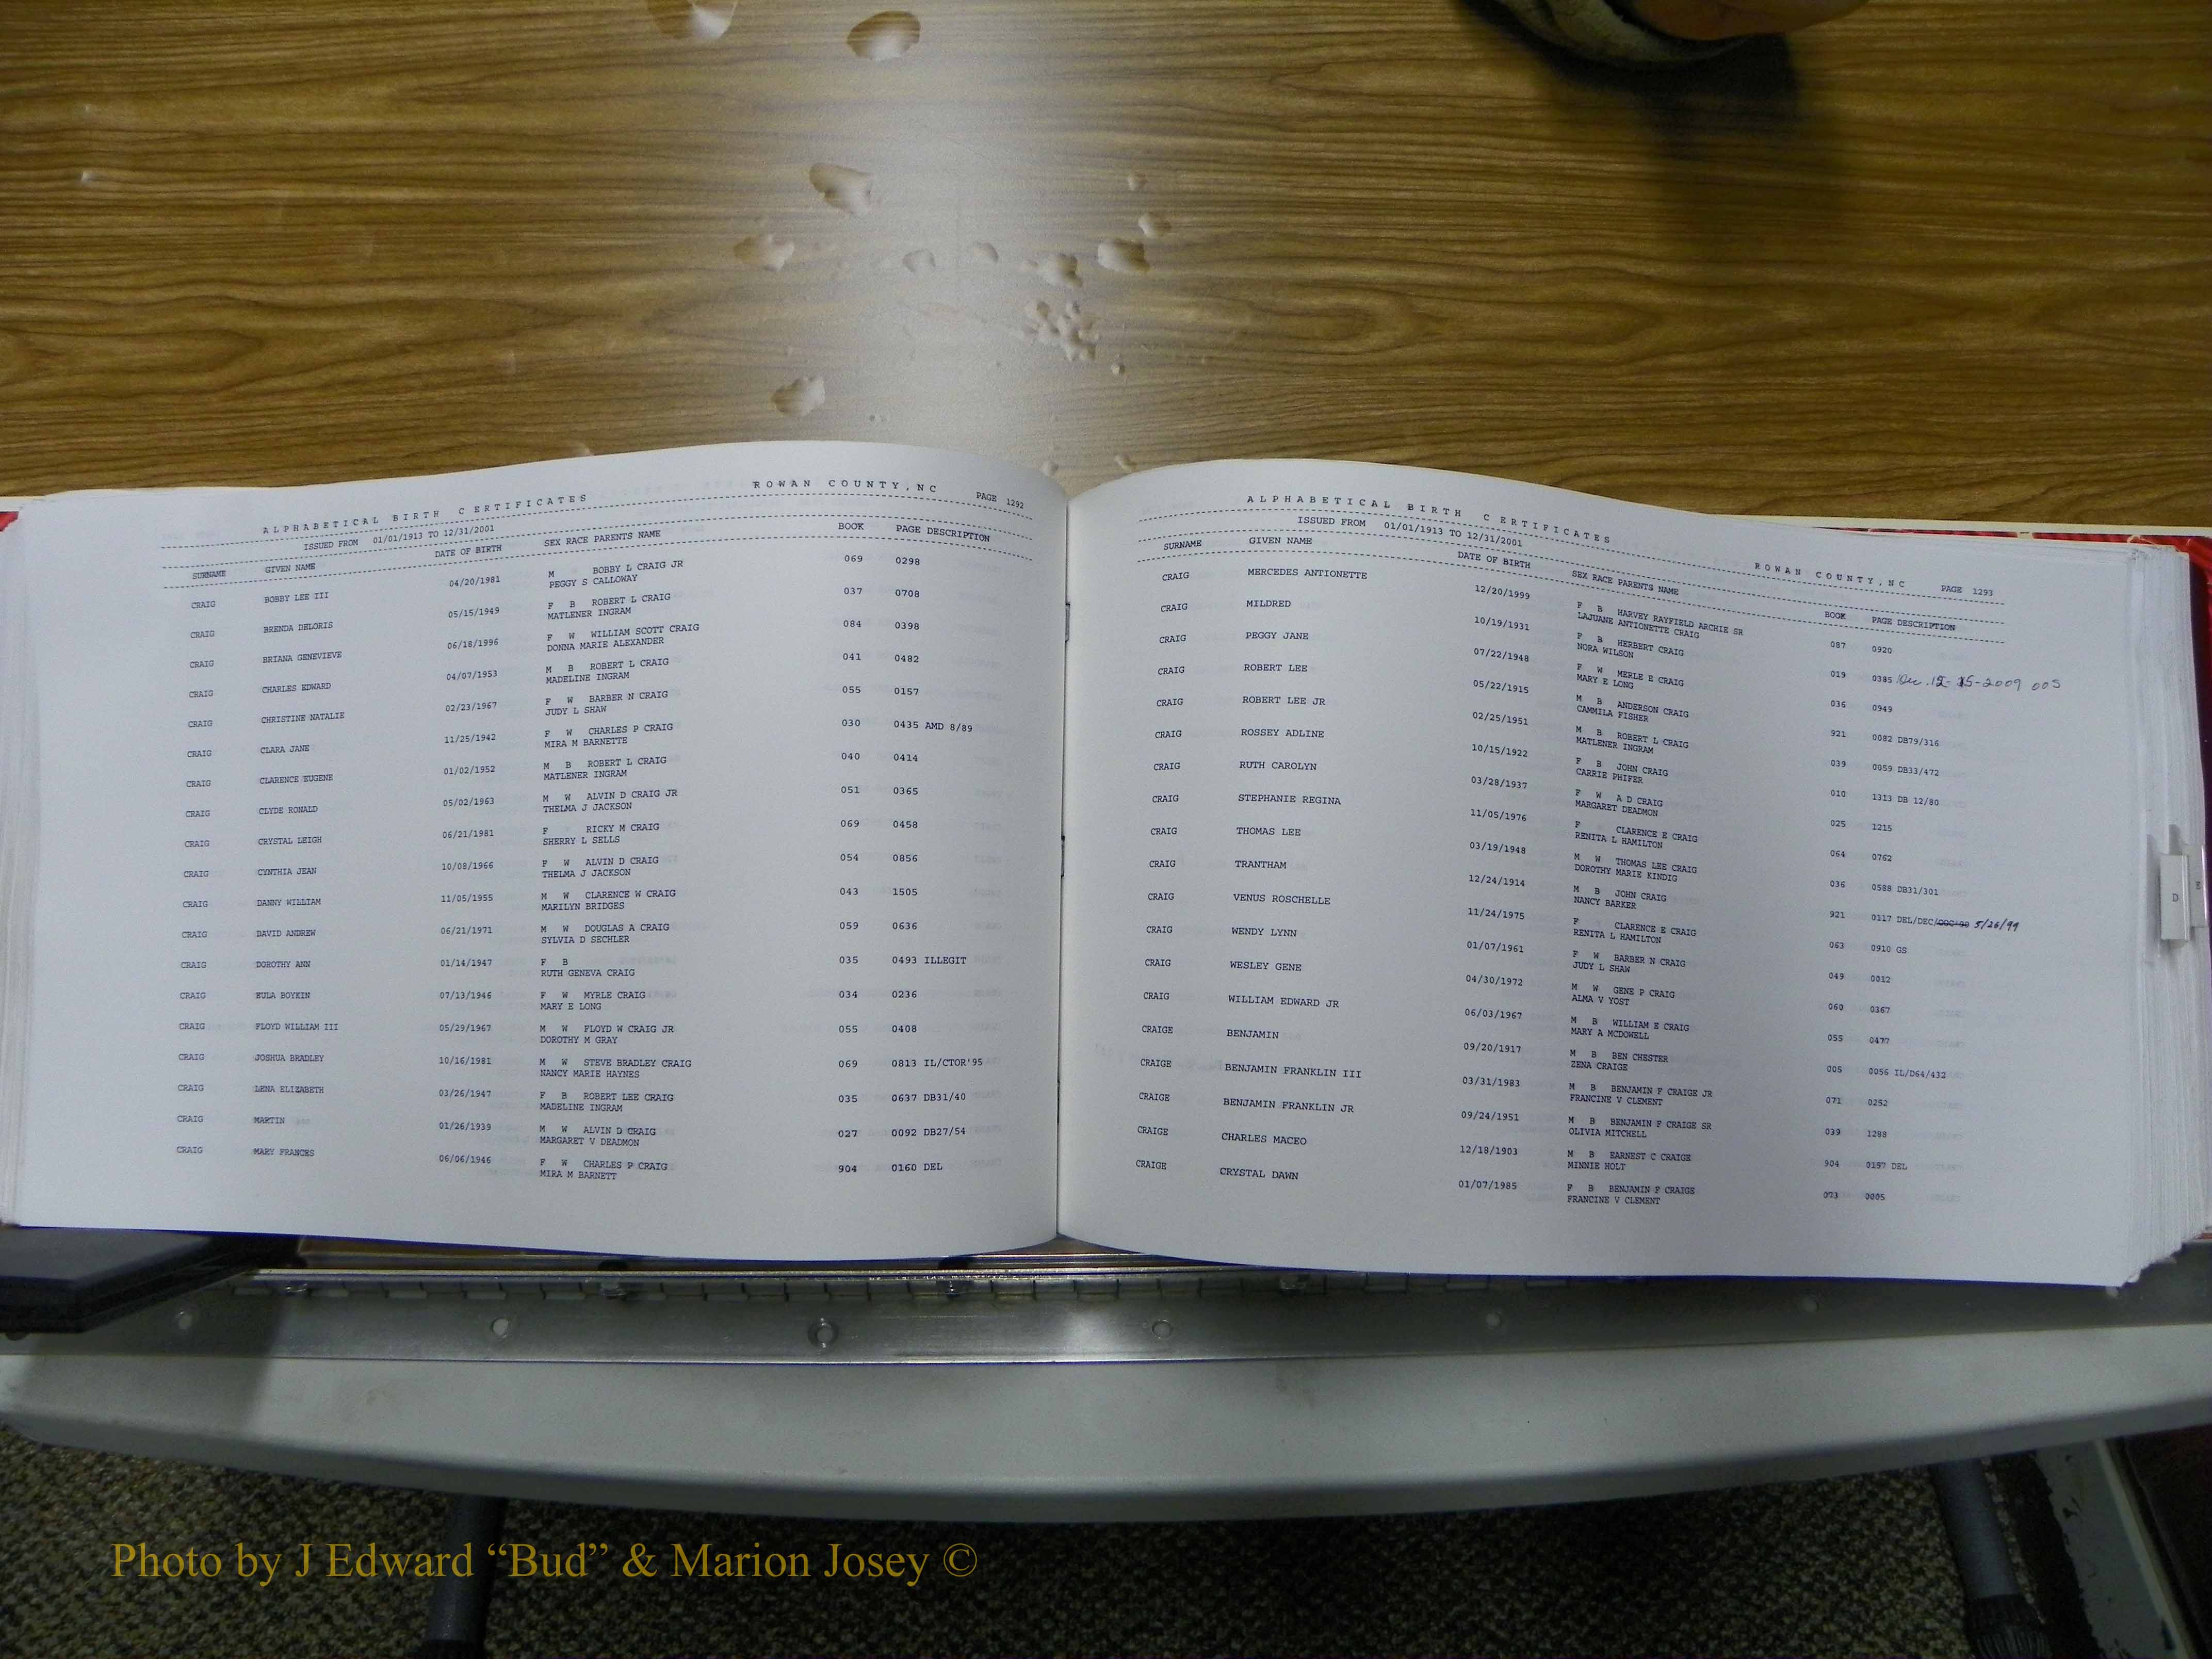 ALPHABETICAL BIRTH CERTIFICATES ROWAN COUNTY, NC PAGE 1292
ISSUED FROM 01/01/1913 TO 12/31/2001
SURNAME GIVEN NAME DATE OF BIRTH SEX RACE PARENTS NAME BOOK PAGE DESCRIPTION
CRAIG BOBBY LEE III 04/20/1981 M BOBBY L CRAIG JR 069 0298
PEGGY S CALLOWAY
CRAIG BRENDA DELORIS 05/15/1949 F B ROBERT L CRAIG 037 0708
MATLENER INGRAM
CRAIG BRIANA GENEVIEVE 06/18/1996 F W WILLIAM SCOTT CRAIG 084 0398
DONNA MARIE ALEXANDER
CRAIG CHARLES EDWARD 04/07/1953 M B ROBERT L CRAIG 041 0482
MADELINE INGRAM
CRAIG CHRISTINE NATALIE 02/23/1967 F W BARBER N CRAIG 055 0157
JUDY L SHAW
CRAIG CLARA JANE 11/25/1942 F W CHARLES P CRAIG 030 0435 AMD 8/89
MIRA M BARNETTE
CRAIG CLARENCE EUGENE 01/02/1952 M B ROBERT L CRAIG 040 0414
MATLENER INGRAM
CRAIG CLYDE RONALD 05/02/1963 M W ALVIN D CRAIG JR 051 0365
THELMA J JACKSON
CRAIG CRYSTAL LEIGH 06/21/1981 F RICKY M CRAIG 069 0458
SHERRY L SELLS
CRAIG CYNTHIA JEAN 10/08/1966 F W ALVIN D CRAIG 054 0856
THELMA J JACKSON
CRAIG DANNY WILLIAM 11/05/1955 M W CLARENCE W CRAIG 043 1505
MARILYN BRIDGES
CRAIG DAVID ANDREW 06/21/1971 M W DOUGLAS A CRAIG 059 0636
SYLVIA D SECHLER
CRAIG DOROTHY ANN 01/14/1947 F B 035 0493 ILLEGIT
RUTH GENEVA CRAIG
CRAIG EULA BOYKIN 07/13/1946 F W MYRLE CRAIG 034 0236
MARY E LONG
CRAIG FLOYD WILLIAM III 05/29/1967 M W FLOYD W CRAIG JR 055 0408
DOROTHY M GRAY
CRAIG JOSHUA BRADLEY 10/16/1981 M W STEVE BRADLEY CRAIG 069 0813 IL/CTOR'95
NANCY MARIE HAYNES
CRAIG LENA ELIZABETH 03/26/1947 F B ROBERT LEE CRAIG 035 0637 DB31/40
MADELINE INGRAM
CRAIG MARTIN 01/26/1939 M W ALVIN D CRAIG 027 0092 DB27/54
MARGARET V DEADMON
CRAIG MARY FRANCES 06/06/1946 F W CHARLES P CRAIG 904 0160 DEL
MIRA M BARNETT
ALPHABETICAL BIRTH CERTIFICATES ROWAN COUNTY, NC PAGE 1293
ISSUED FROM 01/01/1913 TO 12/31/2001
SURNAME GIVEN NAME DATE OF BIRTH SEX RACE PARENTS NAME BOOK PAGE DESCRIPTION
CRAIG MERCEDES ANTIONETTE 12/20/1999 F B HARVEY RAYFIELD ARCHIE SR 087 0920
LAJUANE ANTIONETTE CRAIG
CRAIG MILDRED 10/19/1931 F B HERBERT CRAIG 019 0385 15-2009 005
NORA WILSON
CRAIG PEGGY JANE 07/22/1948 F W MERLE E CRAIG 036 0949
MARY E LONG
CRAIG ROBERT LEE 05/22/1915 M B ANDERSON CRAIG 921 0082 DB79/316
CAMMILA FISHER
CRAIG ROBERT LEE JR 02/25/1951 M B ROBERT L CRAIG 039 0059 DB33/472
MATLENER INGRAM
CRAIG ROSSEY ADLINE 10/15/1922 F B JOHN CRAIG 010 1313 DB 12/80
CARRIE PHIFER
CRAIG RUTH CAROLYN 03/28/1937 F W A D CRAIG 025 1215
MARGARET DEADMON
CRAIG STEPHANIE REGINA 11/05/1976 F CLARENCE E CRAIG 064 0762
RENITA L HAMILTON
CRAIG THOMAS LEE 03/19/1948 M W THOMAS LEE CRAIG 036 0588 DB31/301
DOROTHY MARIE KINDIG
CRAIG TRANTHAM 12/24/1914 M B JOHN CRAIG 921 0117 DEL/DEC/ 5/26/99
NANCY BARKER
CRAIG VENUS ROSCHELLE 11/24/1975 F CLARENCE E CRAIG 063 0910 GS
RENITA L HAMILTON
CRAIG WENDY LYNN 01/07/1961 F W BARBER N CRAIG 049 0012
JUDY L SHAW
CRAIG WESLEY GENE 04/30/1972 M W GENE P CRAIG 060 0367
ALMA V YOST
CRAIG WILLIAM EDWARD JR 06/03/1967 M B WILLIAM E CRAIG 055 0477
MARY A MCDOWELL
CRAIGE BENJAMIN 09/20/1917 M B BEN CHESTER 005 0056 IL/D64/432
ZENA CRAIGE
CRAIGE BENJAMIN FRANKLIN III 03/31/1983 M B BENJAMIN F CRAIGE JR 071 0252
FRANCINE V CLEMENT
CRAIGE BENJAMIN FRANKLIN JR 09/24/1951 M B BENJAMIN F CRAIGE SR 039 1288
OLIVIA MITCHELL
CRAIGE CHARLES MACEO 12/18/1903 M B EARNEST C CRAIGE 904 0157 DEL
MINNIE HOLT
CRAIGE CRYSTAL DAWN 01/07/1985 F B BENJAMIN F CRAIGE 073 0005
FRANCINE V CLEMENT
D
Photo by J Edward “Bud” & Marion Josey ©